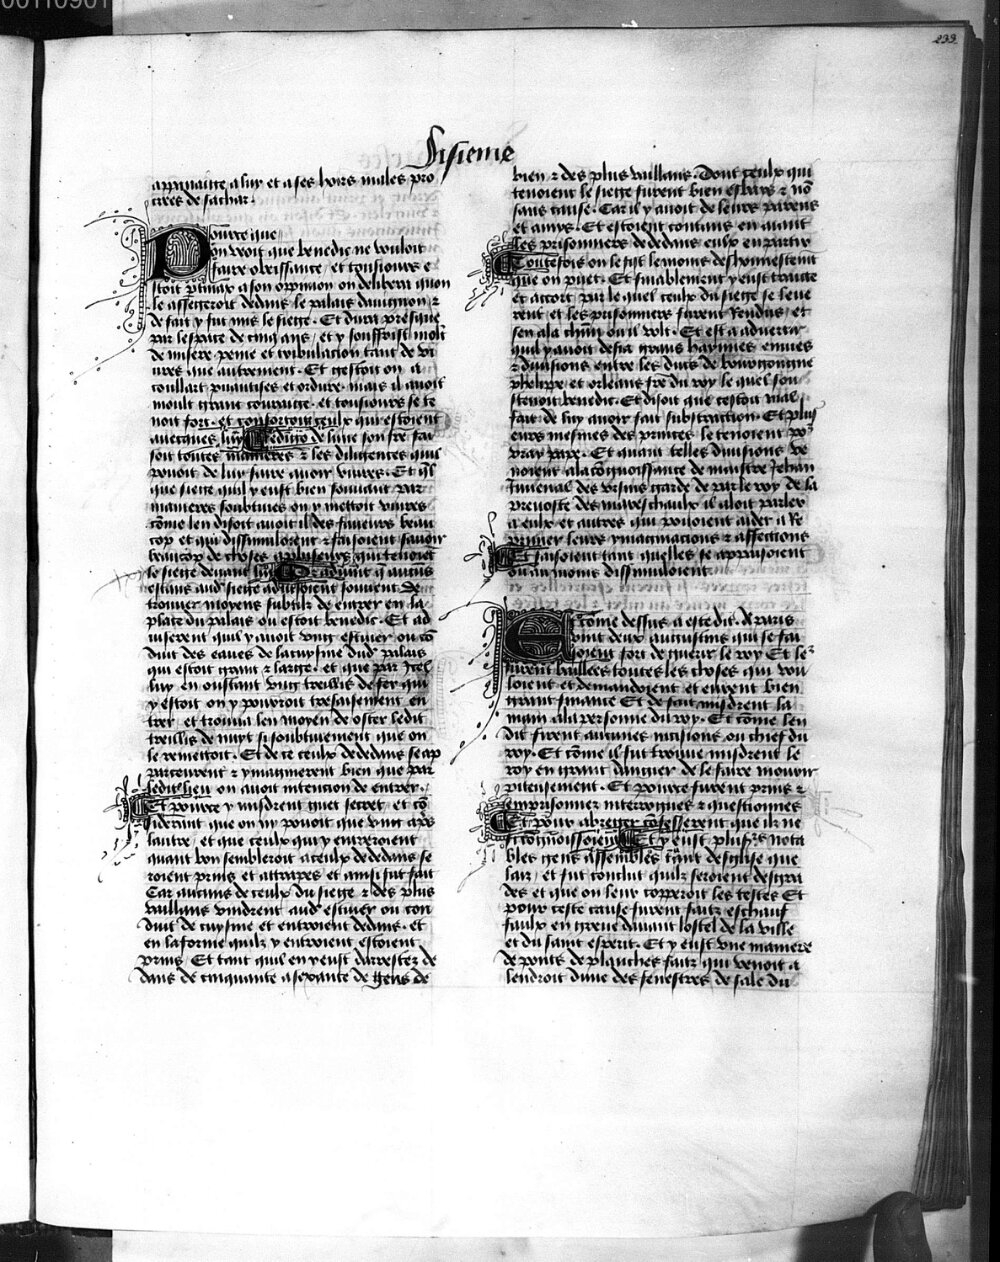 00110901
239
Sisieme
appanaige a luy et a ses hoirs masles pro
crees de sachar
Pource que
on veoit que benedic ne vouloit
faire obeissance, et tousiours e
stoit ptinax a son oppinion on delibera quon
le assegeroit dedans le palais davignon ⁊
de fait y fut mis le siege. Et dura presque
par lespace de cinq ans, et y souffrist molt
de misere peine et tribulacion tant de vi
vres que autrement. Et gestoit on a
coullart puantises et ordure. mais il avoit
moult grant couraige. et tousiours se te
noit fort. et confortoit ceulx qui estoient
avecques luy Et Rodigo de lune son fre fai
soit toutes manieres ⁊ les diligences quil
povoit de luy faire avoir vivres. Et ql
que siege quil y eust bien souvant par
manieres soubtives on y mettoit vivres
come len disoit avoit il des faveurs beau
cop et qui dissimuloient et faisoient savoir
beaucop de choses a pluseurs qui tenoiet
le siege devant luy Or advint q aucus
estans aud siege advisoient souvent de
trouver moyens subtilz de entrer en la
place du palais ou estoit benedic. Et ad
viserent quil y avoit ung esgout ou co
duit des eaves de la cuysine dud palais
qui estoit grant ⁊ large. et que par icel
luy en oustant ung treillis de fer qui
y estoit on y pouroit tresaisement en
trer, et trouva len moyen de oster ledit
treillis de nuyt si soubtivement que on
le remettoit. Et de ce ceulx de dedans se ap
parceurent ⁊ ymaginerent bien que par
ledit lieu on avoit intencion de entrer.
Et pource y misdrent guet secret, et co
siderant que on ny povoit que ung aps
lautre, et que ceulx qui y entreroient
quant bon sembleroit a ceulx de dedans se
roient prins et attrapes et ainsi fut fait
Car aucuns de ceulx du siege ⁊ des plus
vaillans vindrent aud esgout ou con
duit de cuysine et entroient dedans. et
en la forme quilz y entroient estoient
prins. Et tant quil en y eust darrestez de
dans de cinquante a sexante de gens de
bien ⁊ des plus vaillans. Dont ceulx qui
tenoient le siege furent bien esbays ⁊ no
sans cause. Car il y avoit de leurs parens
et amys. Et estoient contans en aiant
les prisonniers de dedans eulx en partir
Toutefois on le fist le moins deshonnestemt
que on puet. Et finablement y eust traicte
et accort par le quel ceulx du siege se leve
rent et les prisonniers furent Rendus, et
sen ala chun ou il volt. Et est a advertir
quil y avoit desia grans haynnes envies
⁊ divisions entre les ducs de bourgongne
phelippe et orleans fre du roy le quel sou
stenoit benedic. Et disoit que cestoit mal
fait de luy avoir fait substraction. Et plus
eurs mesmes des princes le tenoient po
vray pape. Et quant telles divisions ve
noient a la cognoissance de maistre Jehan
Juvenal des ursins garde de par le roy de la
prevoste des mareschaulx il aloit parler
a eulx et autres qui povoient aider a Re
primer leurs ymaginacions ⁊ affections
Et faisoient tant quelles se appaisoient
ou au moins dissimuloient
Come dessus a este dit. A paris
vint deux augustins qui se fai
soient fort de guerir le roy Et le
furent baillees toutes les choses qui vou
loient et demandoient et eurent bien
grant finance Et de fait misdrent la
main a la personne du roy. Et come len
dit firent aucunes incisions ou chief du
roy. Et come il fut trouve misdrent le
roy en grant dangier de le faire mourir
piteusement. Et pource furent prins ⁊
emprisonner interrogues ⁊ questionnes
Et pour abreger cofesserent que ilz ne
sy cognoissoient Et y eust plusrs nota
bles gens assembles tant desglise que
laiz, et fut conclut quilz seroient desgra
des et que on leur copperoit les testes Et
pour ceste cause furent faitz eschauf
faulx en greve davant lostel de la ville
et du saint esperit. Et y eust une maniere
de pons de planches faitz qui venoit a
lendroit dune des fenestres de sale du